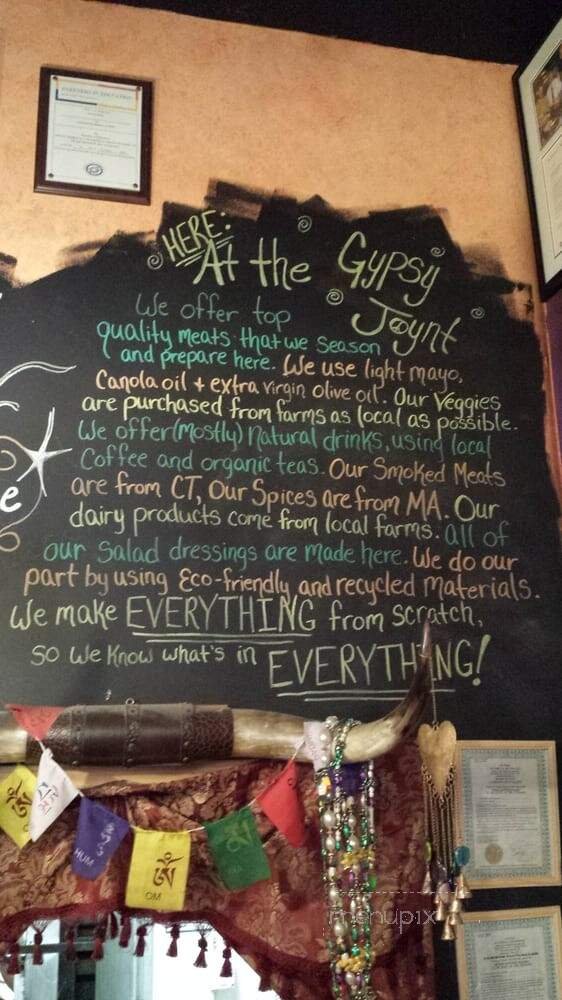 HERE:
At the Gypsy
Joynt
We offer top
quality meats that we season
and prepare here. We use light mayo,
Canola oil + extra virgin olive oil. Our Veggies
are purchased from farms as local as possible.
We offer (mostly) Natural drinks, using local
Coffee and organic teas. Our Smoked Meats
are from CT, Our Spices are from MA. Our
dairy products come from local farms. all of
our salad dressings are made here. We do our
part by using Eco-friendly and recycled materials.
We make EVERYTHING from scratch,
so we know what's in EVERYTHING!
e
HUM
OM
ॐ
menupix